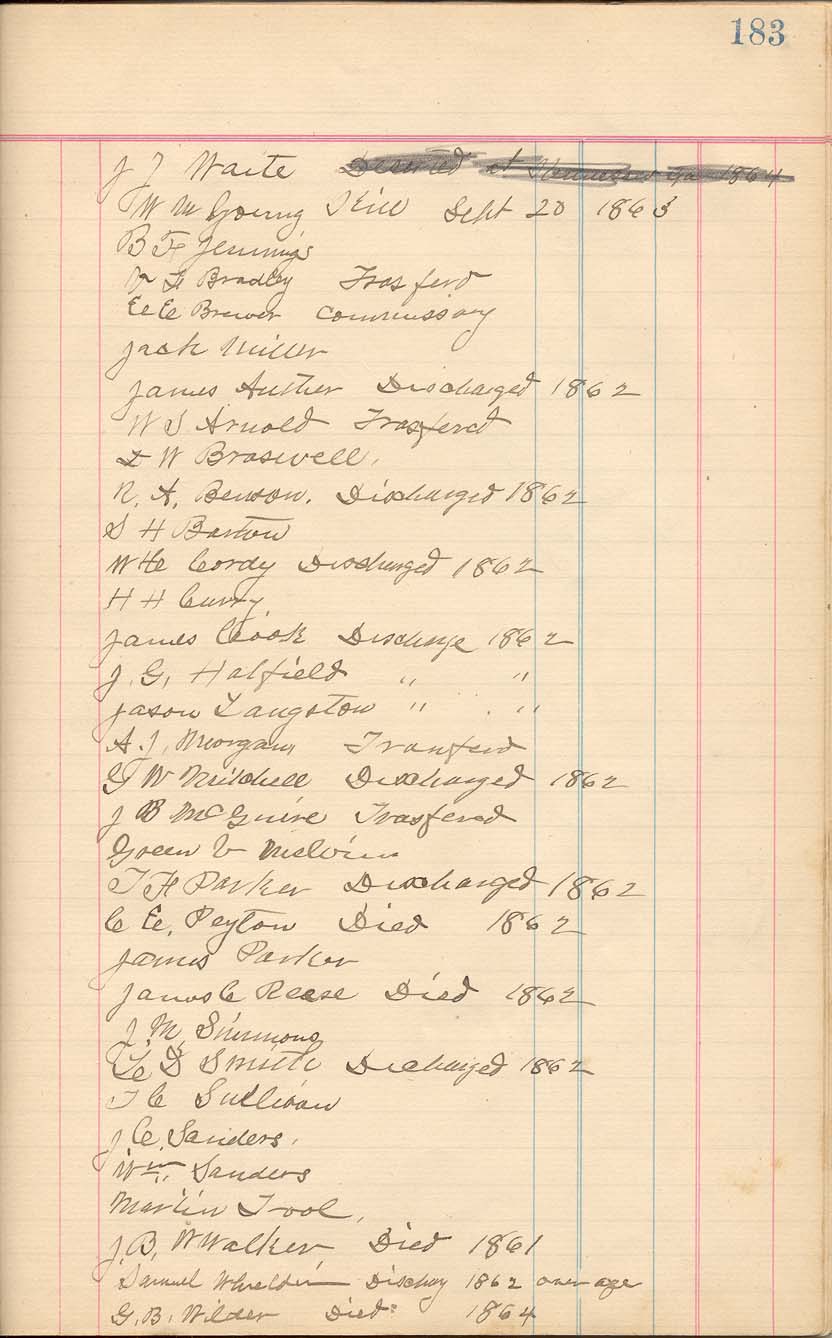 183
J J Waite Deserted at Kennesaw Ga 1864
W M Goung Kill Sept 20 1863
B F Jennings
F Bradley Trasferd
E E Brewer Commissary
Jack Miller
James Auther Discharged 1862
W S Arnold Trasfered
W Braswell.
N. A. Benson. Discharged 1862
S H Barton
W H Cordy Discharged 1862
H H Curry
James Cook Discharge 1862
J. G. Halfield " "
Jason Langston " "
A. J. Morgan Tranferd
G W Mitchell Discharged 1862
J B McGuire Trasfered
Green V Melvin
T F Parker Discharged 1862
C E. Peyton Died 1862
James Parker
James C Reese Died 1862
J. M. Simmons
D Smith Discharged 1862
T C Sullivan
J. C. Sanders.
Wm. Sanders
Martin Tool.
J. B. W Walker Died 1861
Samuel Whieldin Dischag 1862 over age
G. B. Wilder Died 1864